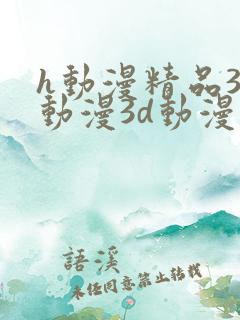 h動漫精品3
動漫3d動漫
語溪
未任同意禁止转载